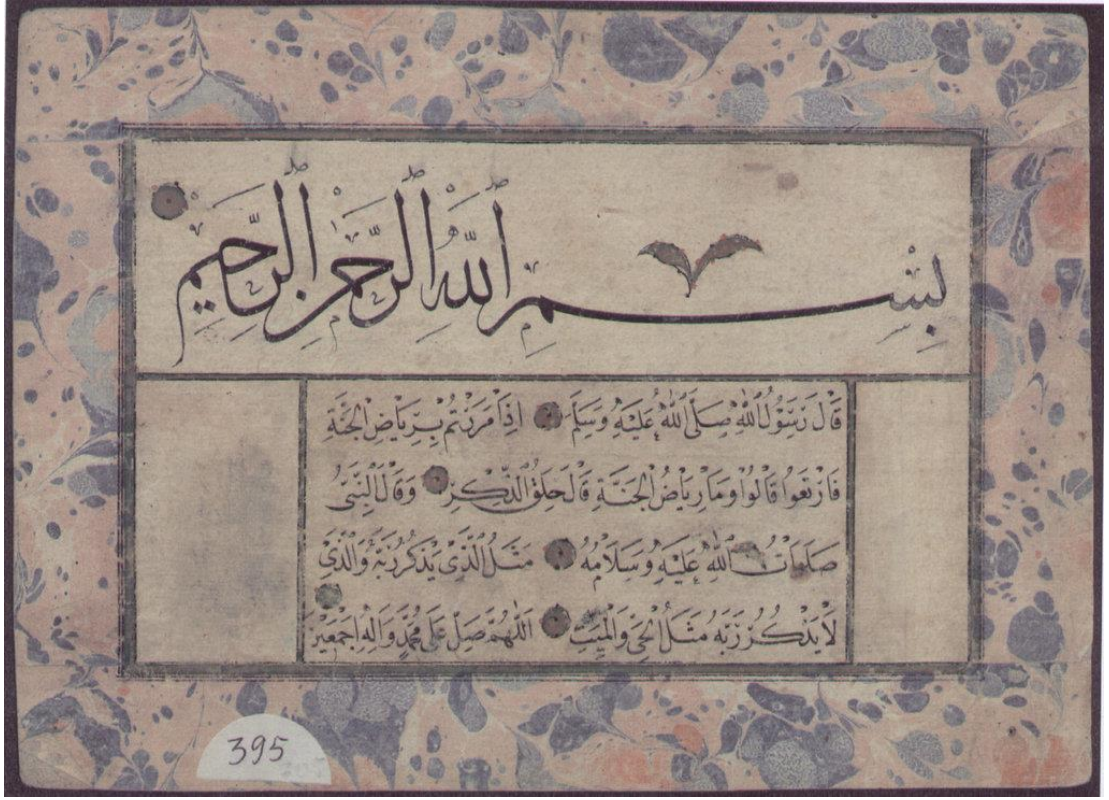 بِسْمِ اللّٰهِ الرَّحْمٰنِ الرَّحِيمِ
قَالَ رَسُولُ اللّٰهِ صَلَّى اللّٰهُ عَلَيْهِ وَسَلَّمَ اِذَا مَرَرْتُمْ بِرِيَاضِ الْجَنَّةِ
فَارْتَعُوا قَالُوا وَمَا رِيَاضُ الْجَنَّةِ قَالَ حِلَقُ الذِّكْرِ وَقَالَ النَّبِىُّ
صَلَوَاتُ اللّٰهِ عَلَيْهِ وَسَلَامُهُ مَثَلُ الَّذِى يَذْكُرُ رَبَّهُ وَالَّذِى
لَا يَذْكُرُ رَبَّهُ مَثَلُ الْحَىِّ وَالْمَيِّتِ اَللّٰهُمَّ صَلِّ عَلَى مُحَمَّدٍ وَاٰلِهِ اَجْمَعِينَ
395